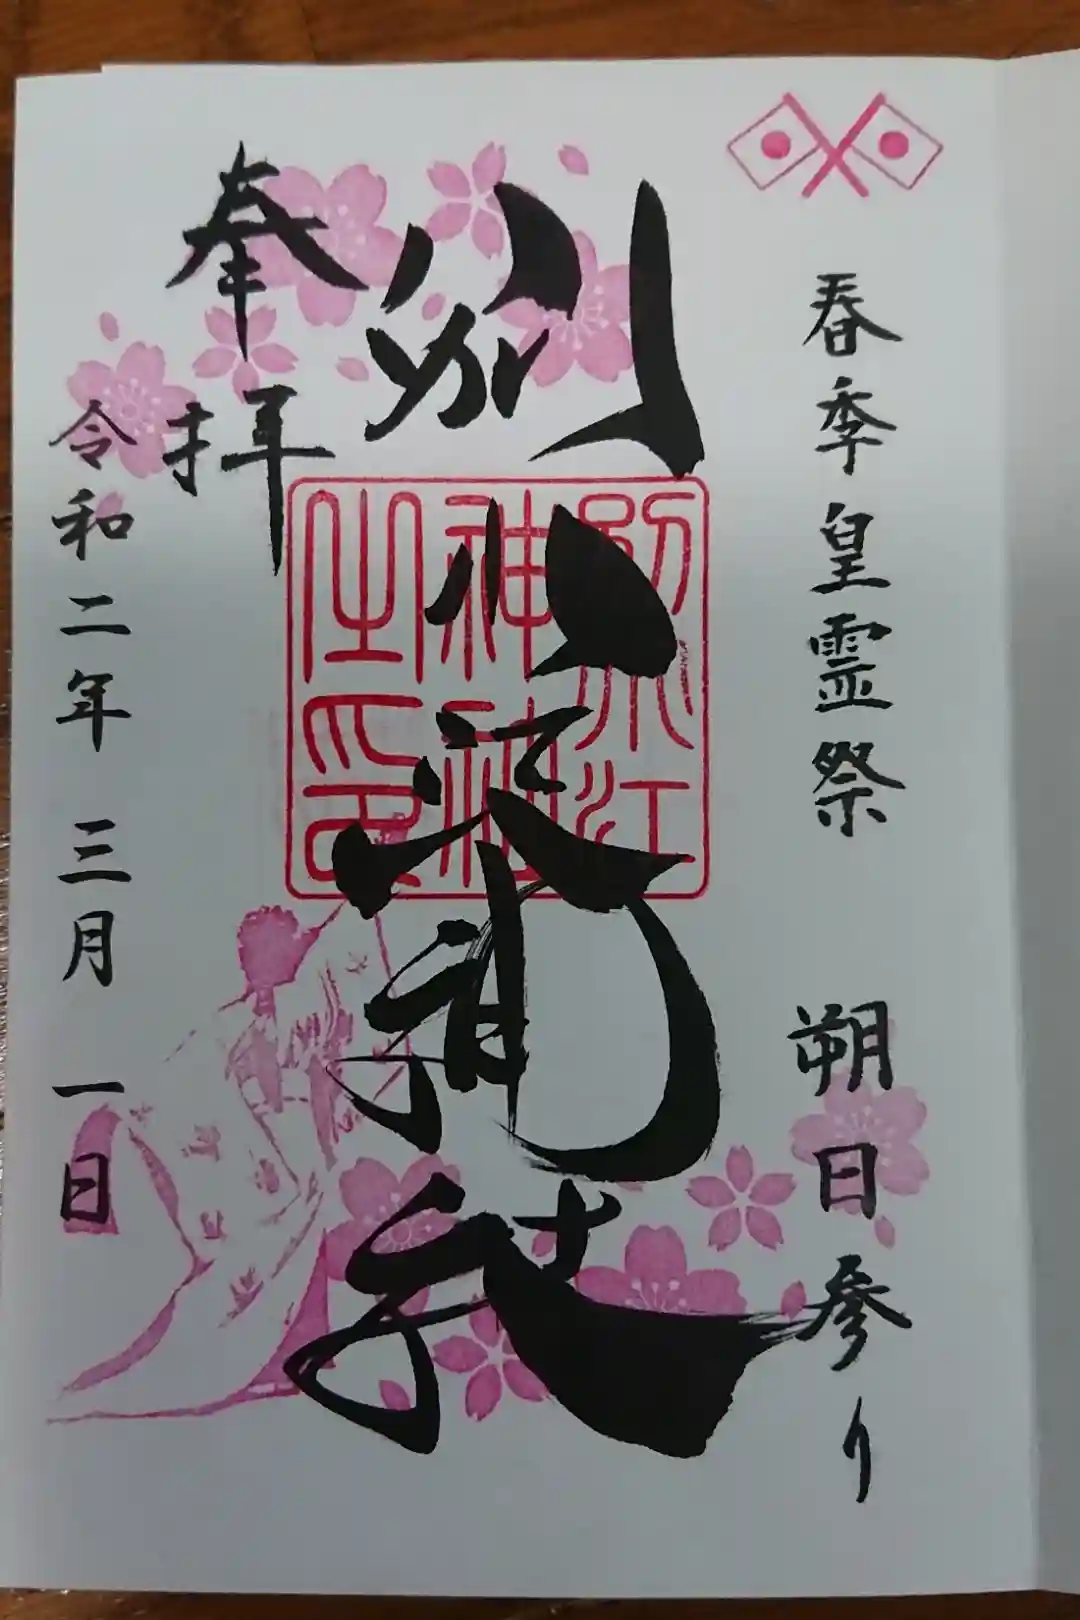 春季皇霊祭 朔日参り
別小江神社
別小江
神社
之印
奉拝
令和二年 三月 一日